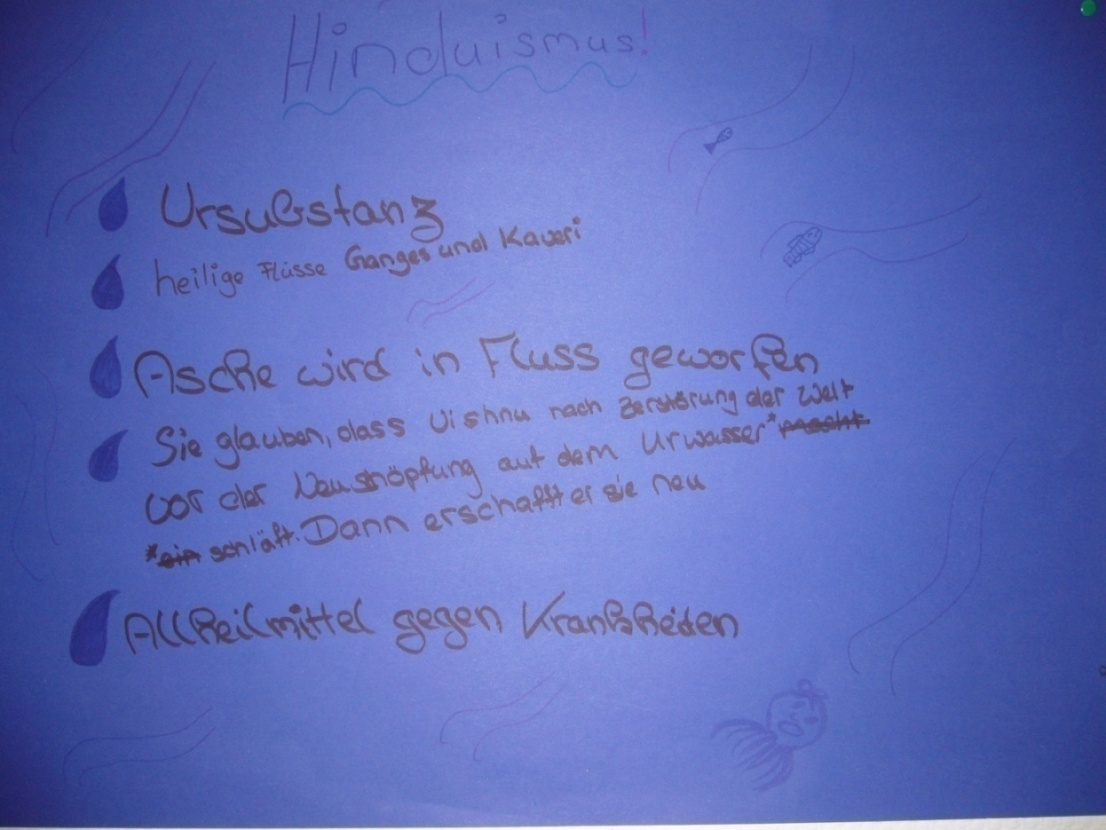 Hinduismus!
Ursubstanz
heilige Flüsse Ganges und Kaveri
Asche wird in Fluss geworfen
Sie glauben, dass Vishnu nach Zerstörung der Welt
vor der Neushöpfung auf dem Urwasser* macht
*ein schläft. Dann erschafft er sie neu
Allheilmittel gegen Krankheiten